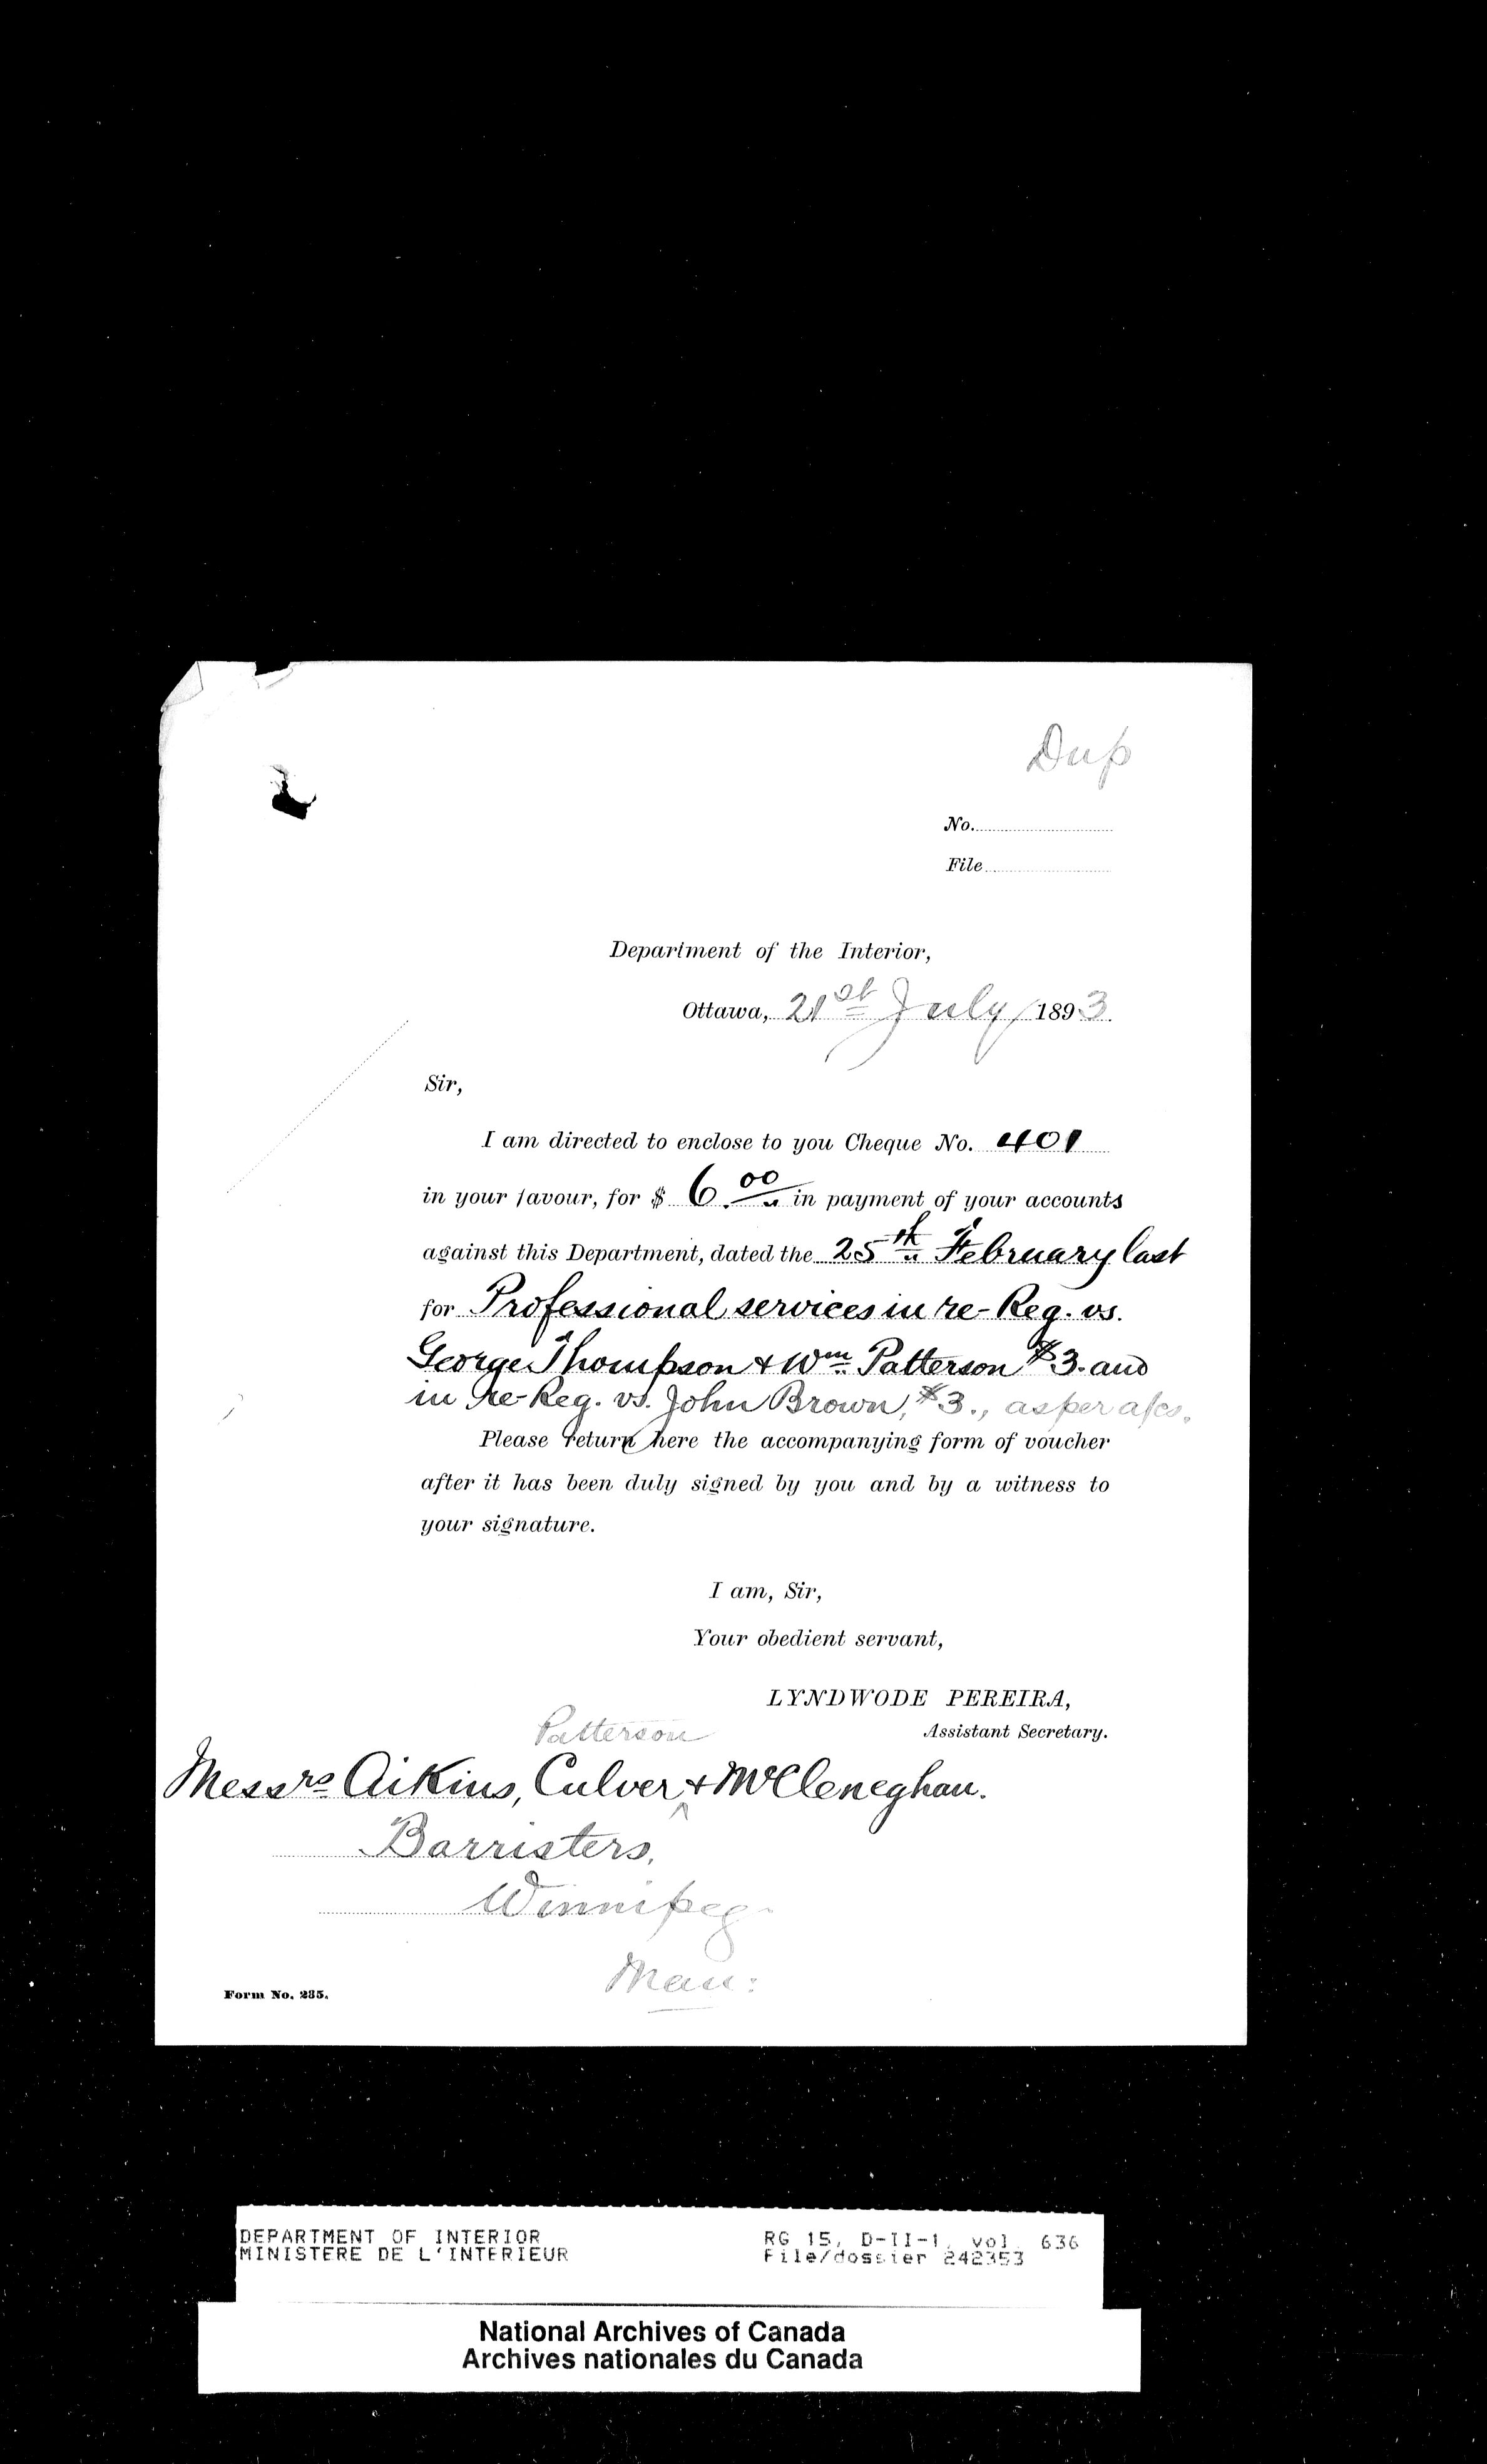 Dup
No.
File
Department of the Interior,
Ottawa, 21st July 1893
Sir,
I am directed to enclose to you Cheque No. 401
in your favour, for $ 6.00 in payment of your accounts
against this Department, dated the 25th February last
for Professional services in re-Reg. vs.
George Thompson & Wm Patterson $3. and
in re-Reg. vs. John Brown, $3., as per a/cs.
Please return here the accompanying form of voucher
after it has been duly signed by you and by a witness to
your signature.
I am, Sir,
Your obedient servant,
LYNDWODE PEREIRA,
Assistant Secretary.
Patterson
Messrs Aikins, Culver & McCleneghan.
Barristers,
Winnipeg.
Man:
Form No. 235.
DEPARTMENT OF INTERIOR RG 15, D-II-1, vol. 636
MINISTERE DE L'INTERIEUR File/dossier 242353
National Archives of Canada
Archives nationales du Canada